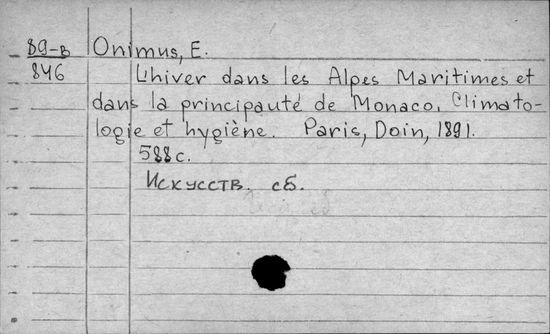 89-в Onimus, E.
846 L'hiver dans les Alpes Maritimes et
dans la principauté de Monaco. Climato-
logie et hygiène. Paris, Doin, 1891.
588 с.
Искусств. сб.